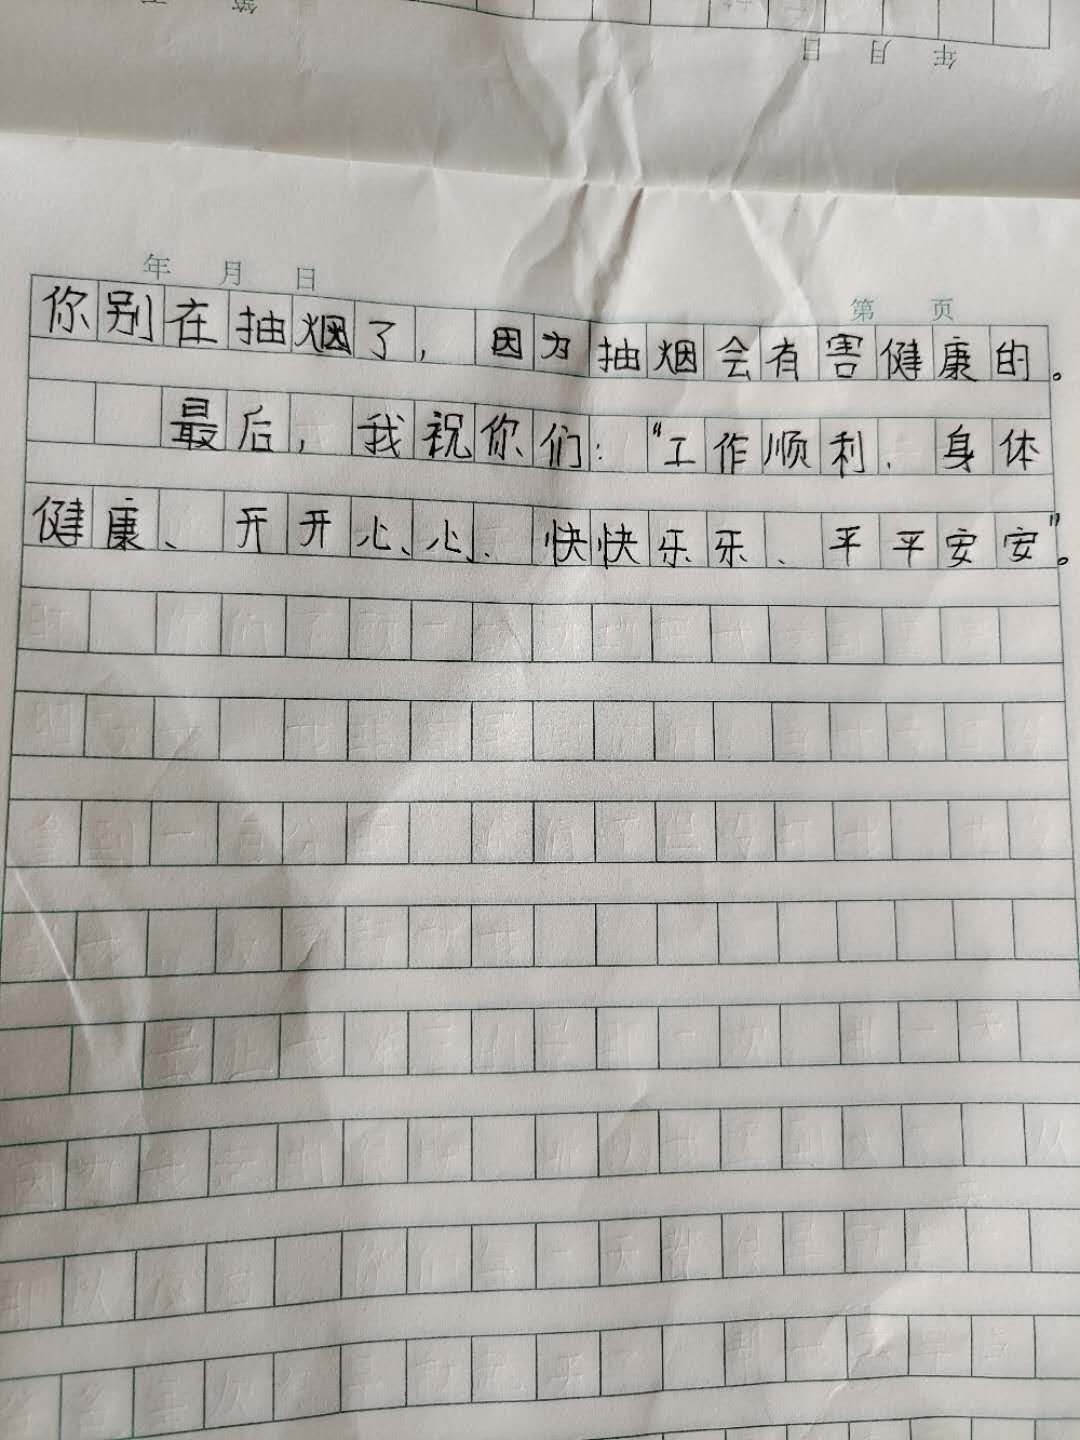 年 月 日
年 月 日
第 页
你别在抽烟了，因为抽烟会有害健康的。
最后，我祝你们：“工作顺利、身体
健康、开开心心、快快乐乐、平平安安”。